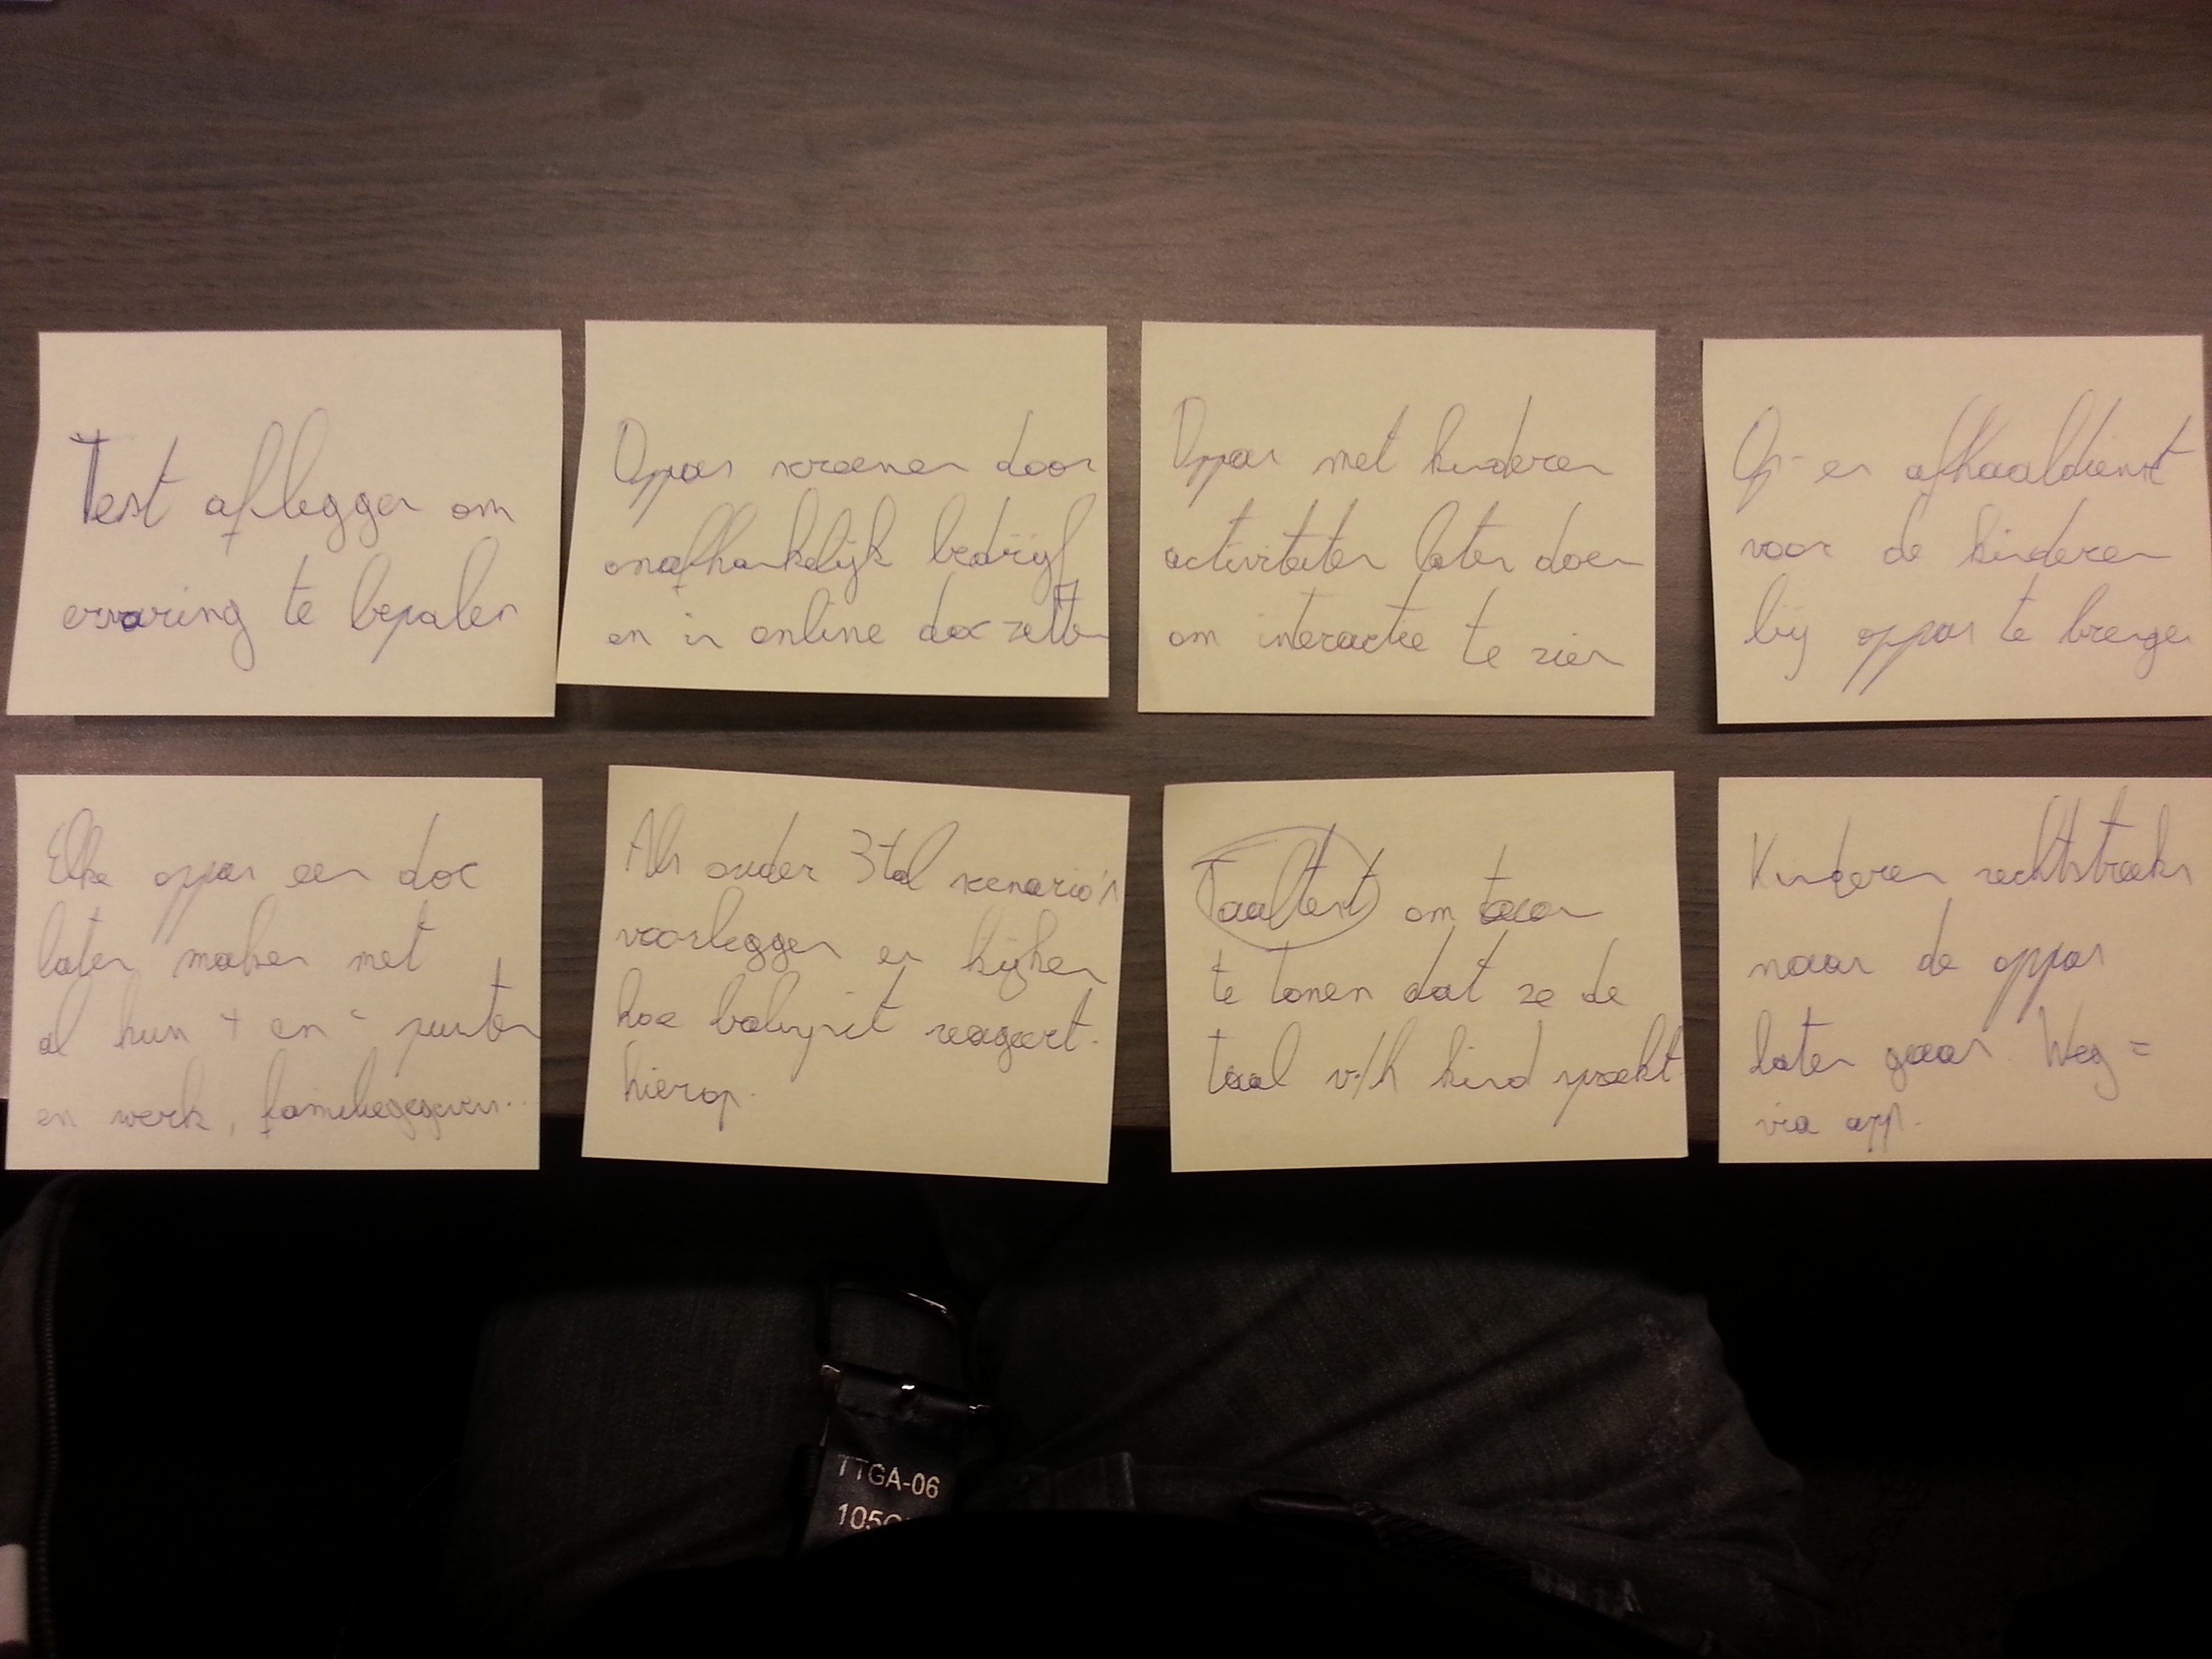 Test afleggen om
ervaring te bepalen
Oppas screenen door
onafhankelijk bedrijf
en in online doc zetten
Oppas met kinderen
activiteiten laten doen
om interactie te zien
Op- en afhaaldienst
voor de kinderen
bij oppas te brengen
Elke oppas een doc
laten maken met
al hun + en - punten
en werk, familiegegevens...
Als ouder 3tal scenario's
voorleggen en kijken
hoe babysit reageert.
hierop.
Taaltest om
te tonen dat ze de
taal v/h kind spreekt.
Kinderen rechtstreeks
naar de oppas
laten gaan. Weg =
via app.
TTGA-06